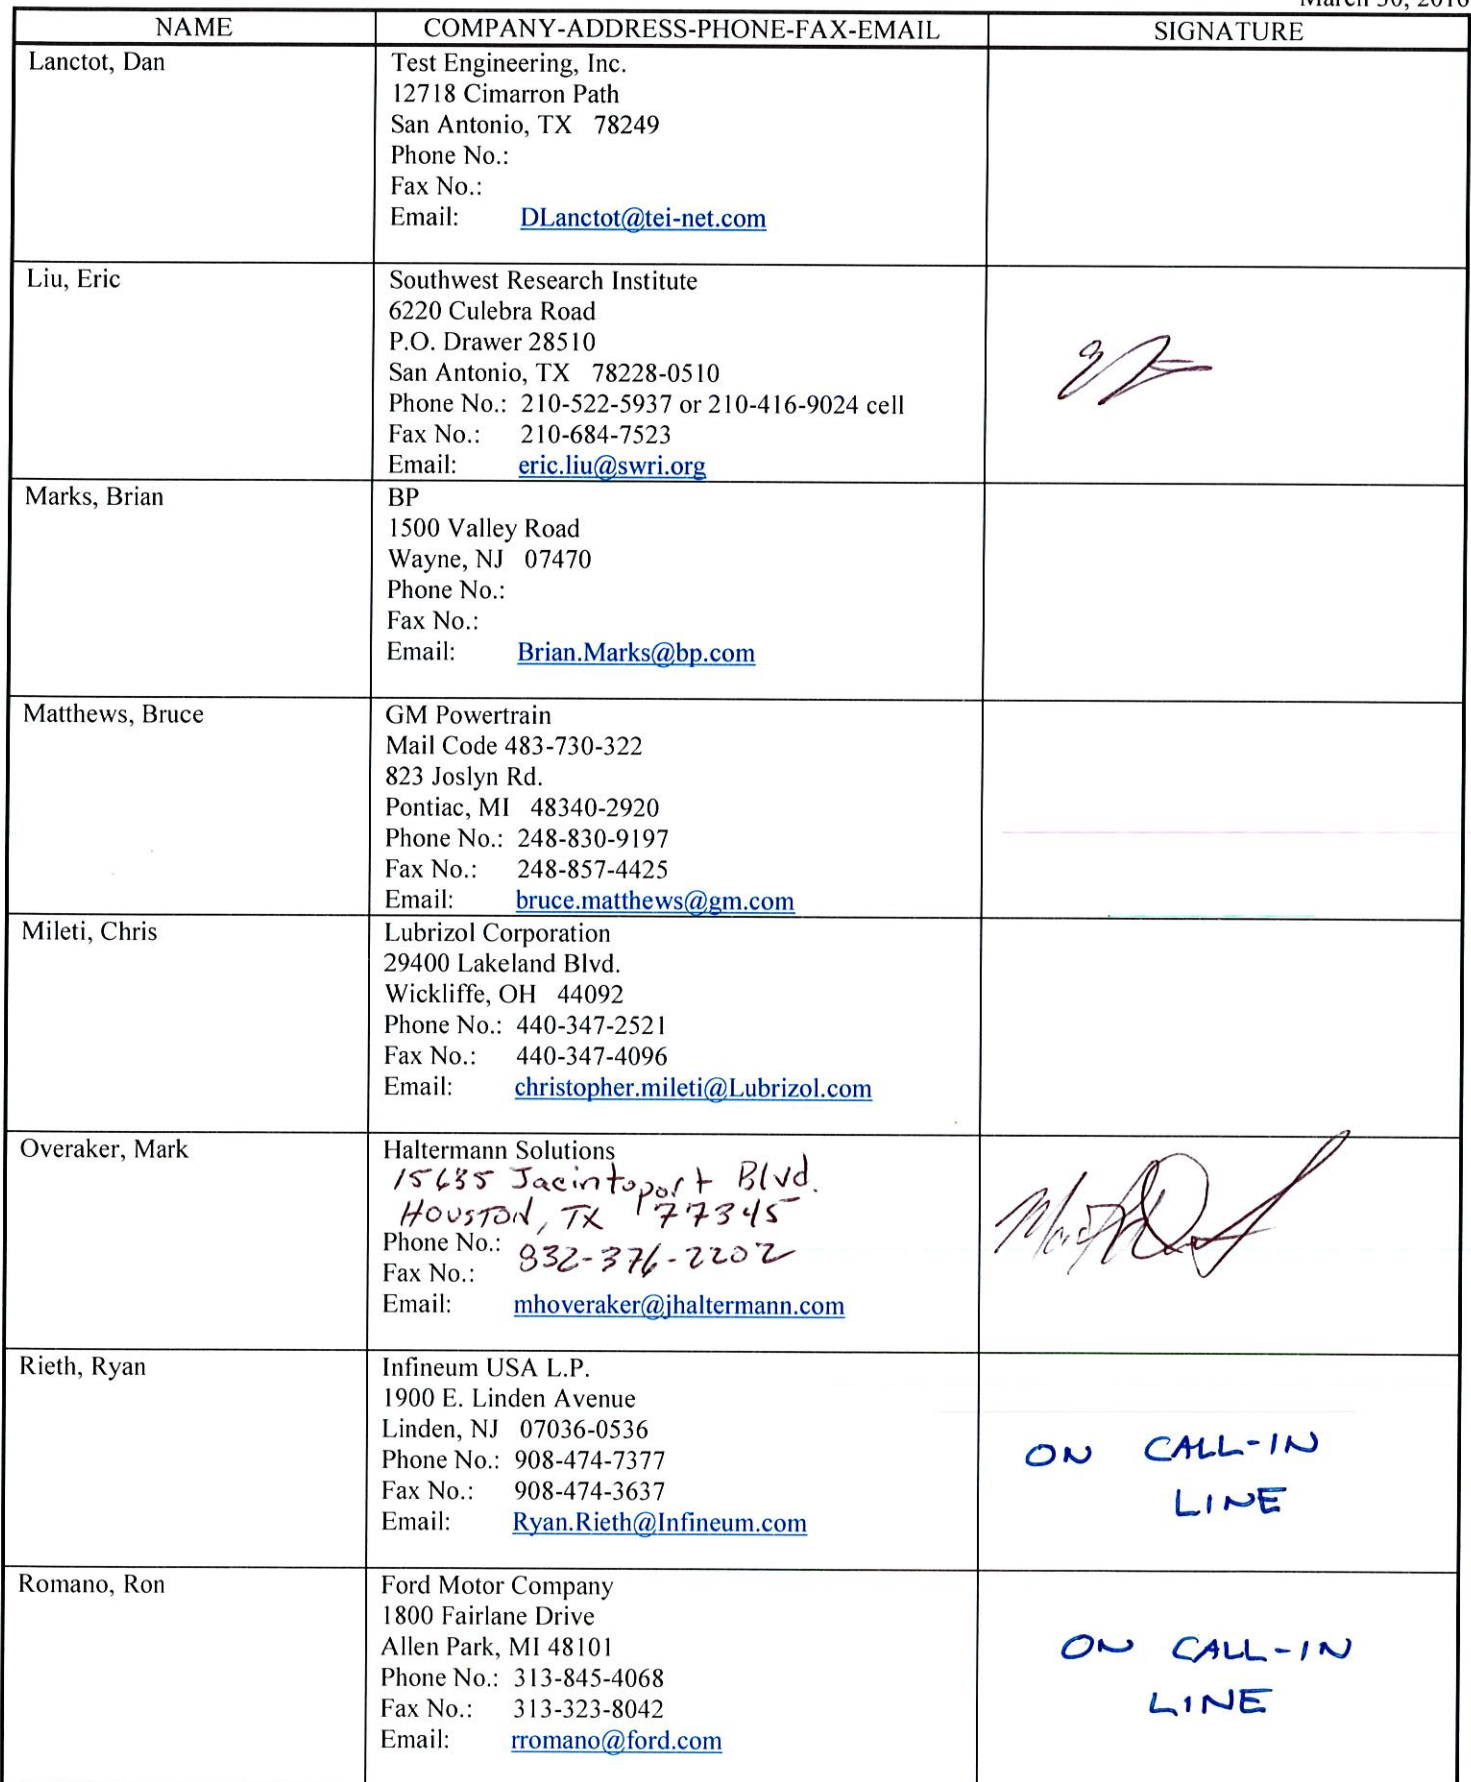 March 30, 2016
NAME
COMPANY-ADDRESS-PHONE-FAX-EMAIL
SIGNATURE
Lanctot, Dan
Test Engineering, Inc.
12718 Cimarron Path
San Antonio, TX 78249
Phone No.:
Fax No.:
Email: DLanctot@tei-net.com
Liu, Eric
Southwest Research Institute
6220 Culebra Road
P.O. Drawer 28510
San Antonio, TX 78228-0510
Phone No.: 210-522-5937 or 210-416-9024 cell
Fax No.: 210-684-7523
Email: eric.liu@swri.org
Marks, Brian
BP
1500 Valley Road
Wayne, NJ 07470
Phone No.:
Fax No.:
Email: Brian.Marks@bp.com
Matthews, Bruce
GM Powertrain
Mail Code 483-730-322
823 Joslyn Rd.
Pontiac, MI 48340-2920
Phone No.: 248-830-9197
Fax No.: 248-857-4425
Email: bruce.matthews@gm.com
Mileti, Chris
Lubrizol Corporation
29400 Lakeland Blvd.
Wickliffe, OH 44092
Phone No.: 440-347-2521
Fax No.: 440-347-4096
Email: christopher.mileti@Lubrizol.com
Overaker, Mark
Haltermann Solutions
Jacintoport Blvd.
HOUSTON, TX 77345
Phone No.: 832-376-2202
Fax No.:
Email: mhoveraker@jhaltermann.com
Rieth, Ryan
Infineum USA L.P.
1900 E. Linden Avenue
Linden, NJ 07036-0536
Phone No.: 908-474-7377
Fax No.: 908-474-3637
Email: Ryan.Rieth@Infineum.com
ON CALL-IN
LINE
Romano, Ron
Ford Motor Company
1800 Fairlane Drive
Allen Park, MI 48101
Phone No.: 313-845-4068
Fax No.: 313-323-8042
Email: rromano@ford.com
ON CALL-IN
LINE